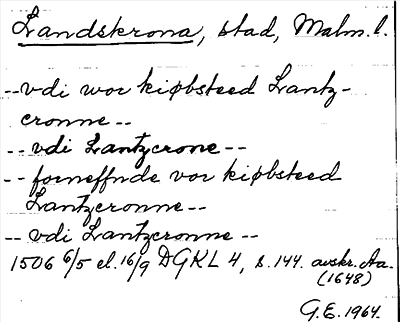 Landskrona, stad, Malm. l.
--vdi wor kiøbsteed Lantz-
cronne--
--vdi Lantzcrone--
--forneffnde vor kiøbsteed
Lantzcronne--
--vdi Lantzcronne--
1506 6/5 el. 16/9 DGKL 4, s. 144. avskr. Aa.
(1648)
G.E. 1964.